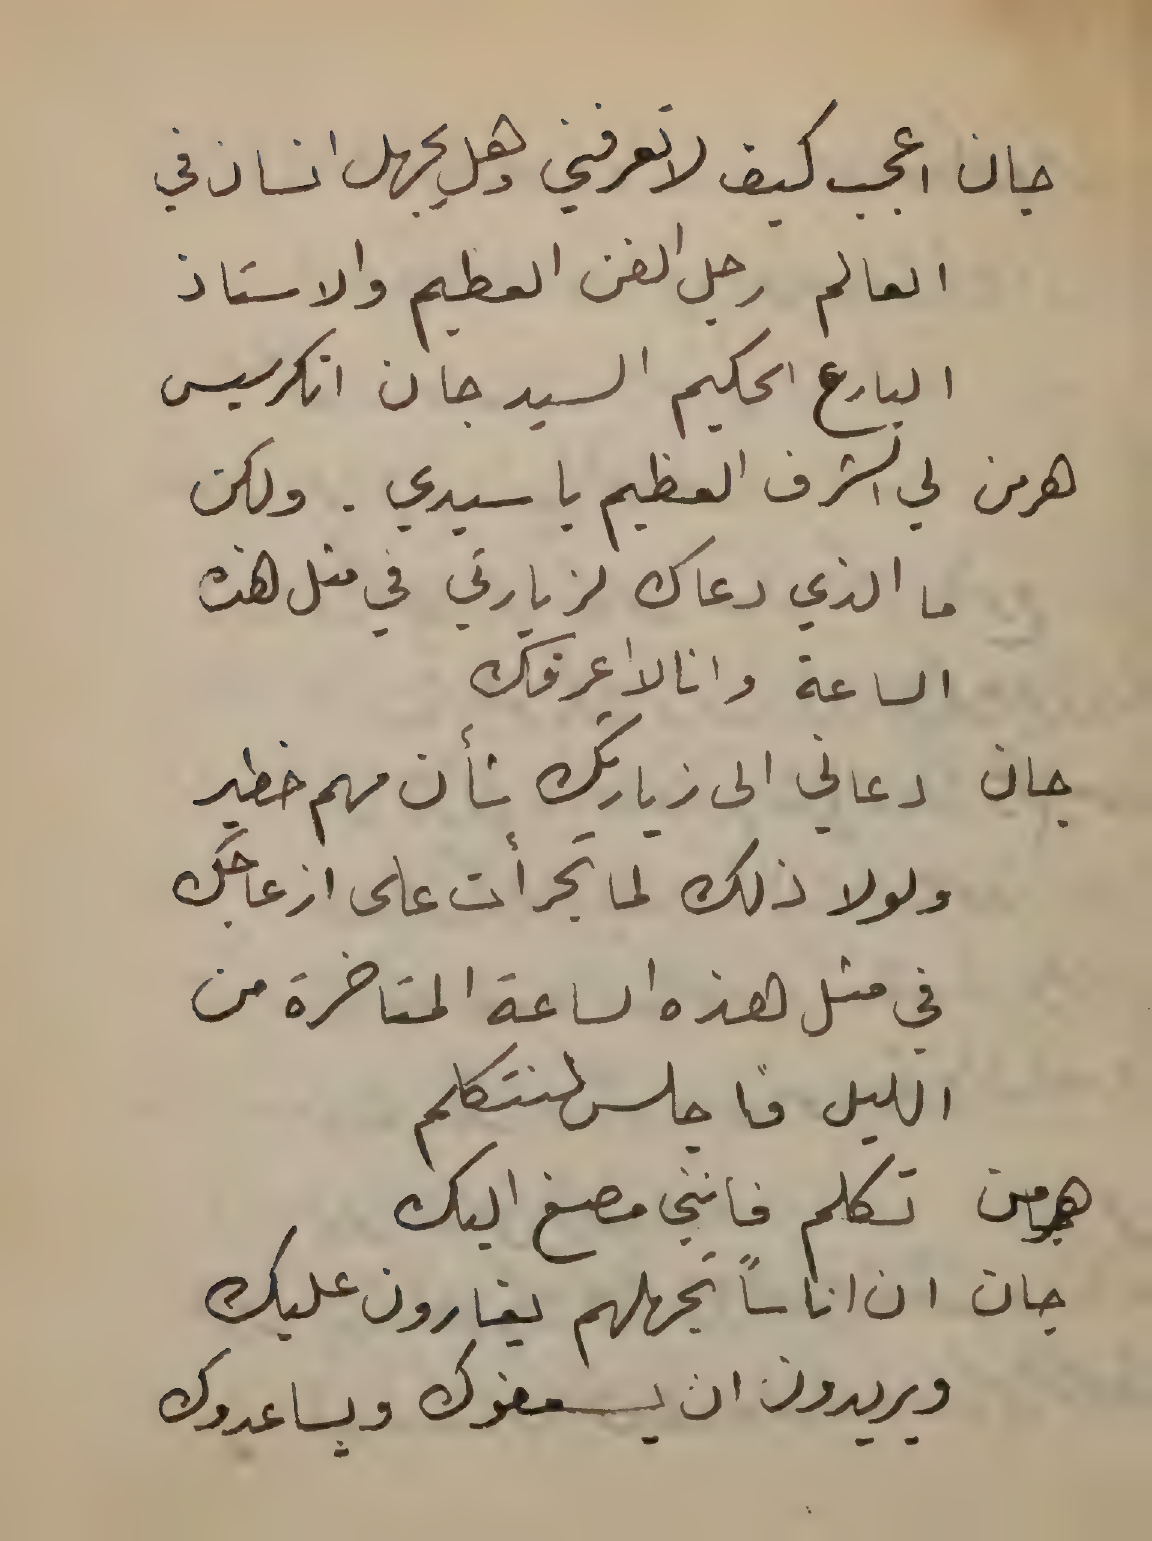 جان اعجب كيف لا تعرفني وهل يجهل انسان في
العالم رجل الفن العظيم والاستاذ
البارع الحكيم السيد جان انكرسيس
هرمن لي الشرف العظيم يا سيدي . ولكن
ما الذي دعاك لزيارتي في مثل هذه
الساعة وانا لا اعرفك
جان دعاني الى زيارتك شأن مهم خطير
ولولا ذلك لما تجرأت على ازعاجك
في مثل هذه الساعة المتاخرة من
الليل فاجلس لنتكلم
هرمن تكلم فانني مصغ اليك
جان ان اناساً تجهلهم يغارون عليك
ويريدون ان يسعفوك ويساعدوك